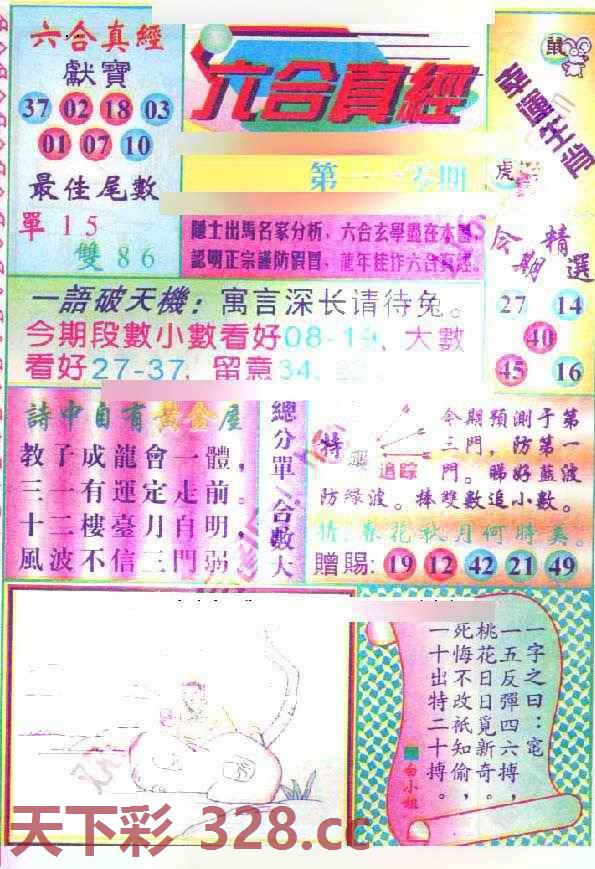 六合真經
獻寶
37 02 18 03
01 07 10
最佳尾數
單 15
雙 86
六合真經
第一一零期
隱士出馬名家分析，六合玄學盡在本圖，
認明正宗謹防假冒，龍年佳作六合真經。
鼠
幸運生肖
虎
今期精選
27 14
40
45 16
一語破天機：寓言深长请待兔。
今期段數小數看好08-19、大數
看好27-37，留意34
詩中自有黃金屋
教子成龍會一體，
三一有運定走前。
十二樓臺月自明，
風波不信三門弱
總分單，合數大
特 追踪
今期預測于第
三門，防第一
門。睇好藍波
防綠波。捧雙數追小數。
猜：春花秋月何時美。
贈賜：19 12 42 21 49
一字之曰：寃
一五反彈四六搏，
桃花日日覓新奇。
死悔不改衹知偷，
一十出特二十搏。
白小姐
天下彩 328.cc